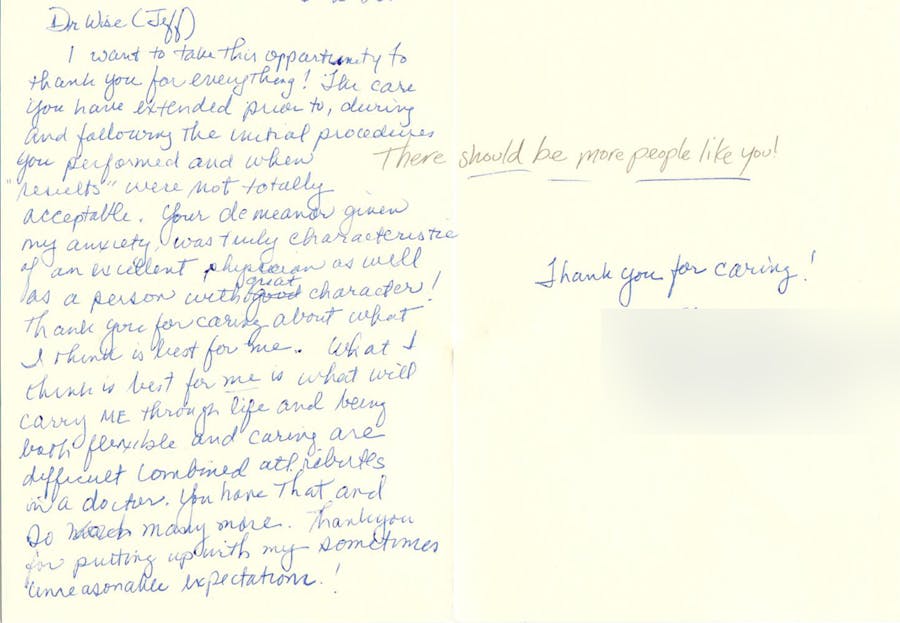 Dr Wise (Jeff)
I want to take this opportunity to
thank you for everything! The care
you have extended prior to, during
and following the initial procedures
you performed and when
"results" were not totally
acceptable. Your demeanor given
my anxiety, was truly characteristic
of an excellent physician as well
great
as a person with good character!
Thank you for caring about what
I think is best for me. What I
think is best for me is what will
carry ME through life and being
both flexible and caring are
difficult combined attributes
in a doctor. You have That and
so much many more. Thankyou
for putting up with my sometimes
"unreasonable expectations!
There should be more people like you!
Thank you for caring!